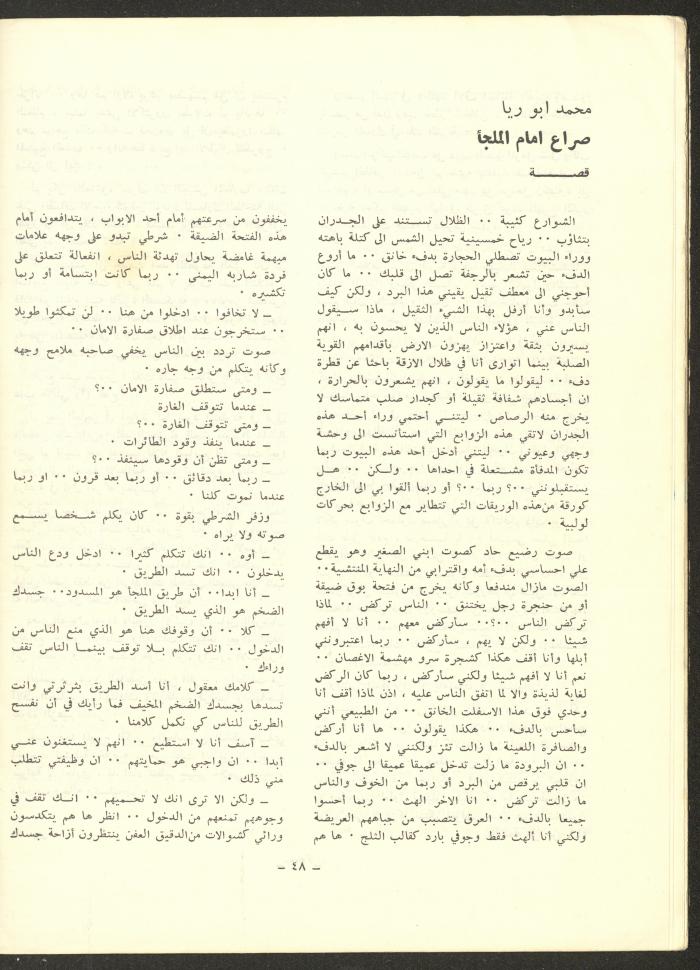 محمد ابو ريا
صراع امام الملجأ
قصـــــة
الشوارع كئيبة ٠٠ الظلال تســتند على الجـدران
بتثاؤب ٠٠ رياح خمسينية تحيل الشمس الى كتلة باهته
ووراء البيوت تصطلي الحجارة بدفء خانق ٠٠ ما أروع
الدفء حين تشعر بالرجفة تصل الى قلبك ٠٠ ما كان
أحوجني الى معطف ثقيل يقيني هذا البرد ، ولكن كيف
سأبدو وأنا أرفل بهذا الشيء الثقيل ، ماذا ســيقول
الناس عني ، هؤلاء الناس الذين لا يحسون به ، انهم
يسيرون بثقة واعتزاز يهزون الارض بأقدامهم القوية
الصلبة بينما اتوارى أنا في ظلال الازقة باحثا عن قطرة
دفء ٠٠ ليقولوا ما يقولون ، انهم يشعرون بالحرارة ،
ان أجسادهم شفافة ثقيلة أو كجدار صلب متماسك لا
يخرج منه الرصاص ٠ ليتنــي أحتمي وراء أحــد هذه
الجدران لاتقي هذه الزوابع التي استأنست الى وحشة
وجهي وعيوني ٠٠ ليتني أدخل أحد هذه البيوت ربما
تكون المدفأة مشــتعلة في احداها ٠٠ ولــكن ٠٠ هــل
يستقبلونني ٠٠؟ ربما ٠٠؟ أو ربما ألقوا بي الى الخارج
كورقة من هذه الوريقات التي تتطاير مع الزوابع بحركات
لولبية ٠
صوت رضيع حاد كصوت ابني الصغير وهو يقطع
علي احساسي بدفء أمه واقترابي من النهاية المنتشية٠٠
الصوت مازال مندفعا وكأنه يخرج من فتحة بوق ضيقة
أو من حنجرة رجل يختنق ٠٠ الناس تركض ٠٠ لماذا
تركض الناس ٠٠؟٠٠ سأركض معهم ٠٠ أنا لا أفهم
شيئا ٠٠ ولكن لا يهم ، سأركض ٠٠ ربما اعتبرونني
أبلها وأنا أقف هكذا كشجرة سرو مهشمة الاغصان ٠٠
نعم أنا لا أفهم شيئا ولكني سأركض ، ربما كان الركض
لغاية لذيذة والا لما اتفق الناس عليه ، اذن لماذا أقف أنا
وحدي فوق هذا الاسفلت الخانق ٠٠ من الطبيعي أنني
سأحس بالدفء ٠٠ هكذا يقولون ٠٠ ها أنا أركض
والصافرة اللعينة ما زالت تئز ولكنني لا أشعر بالدفء
٠٠ ان البرودة ما زلت تدخل عميقا عميقا الى جوفي ٠٠
ان قلبي يرقص من البرد أو ربما من الخوف والناس
ما زالت تركض ٠٠ انا الاخر الهث ٠٠ ربما أحسوا
جميعا بالدفء ٠٠ العرق يتصبب من جباههم العريضة
ولكني أنا ألهث فقط وجوفي بارد كقالب الثلج ٠ ها هم
يخففون من سرعتهم أمام أحد الابواب ، يتدافعون أمام
هذه الفتحة الضيقة ٠ شرطي تبدو على وجهه علامات
مبهمة غامضة يحاول تهدئة الناس ، انفعالة تتعلق على
فردة شاربه اليمنى ٠٠ ربما كانت ابتسامة أو ربما
تكشيره ٠
ــ لا تخافوا ٠٠ ادخلوا من هنا ٠٠ لن تمكثوا طويلا
٠٠ ستخرجون عند اطلاق صفارة الامان ٠٠
صوت تردد بين الناس يخفي صاحبه ملامح وجهه
وكأنه يتكلم من وجه جاره ٠
ــ ومتى ستطلق صفارة الامان ٠٠؟
ــ عندما تتوقف الغارة
ــ ومتى تتوقف الغارة ٠٠؟
ــ عندما ينفذ وقود الطائرات ٠
ــ ومتى تظن أن وقودها سينفذ ٠٠؟
ــ ربما بعد دقائق ٠٠ أو ربما بعد قرون ٠٠ او ربما
عندما نموت كلنا ٠
وزفر الشرطي بقوة ٠٠ كان يكلم شــخصا يســمع
صوته ولا يراه ٠
ــ أوه ٠٠ انك تتكلم كثيرا ٠٠ ادخل ودع الناس
يدخلون ٠٠ انك تسد الطريق ٠
ــ أنا ابدا٠٠ أن طريق الملجأ هو المسدود٠٠ جسدك
الضخم هو الذي يسد الطريق ٠
ــ كلا ٠٠ أن وقوفك هنا هو الذي منع الناس من
الدخول ٠٠ انك تتكلم بــلا توقف بينمــا الناس تقف
وراءك ٠
ــ كلامك معقول ، أنا أسد الطريق بثرثرتي وانت
تسدها بجسدك الضخم المخيف فما رأيك في أن نفسح
الطريق للناس كي نكمل كلامنا ٠
ــ آسف أنا لا استطيع ٠٠ انهم لا يستغنون عنــي
أبدا ٠٠ ان واجبي هو حمايتهم ٠٠ ان وظيفتي تتطلب
مني ذلك ٠
ــ ولكن الا ترى انك لا تحــميهم ٠٠ انــك تقف في
وجوههم تمنعهم من الدخول ٠٠ انظر ها هم يتكدسون
ورائي كشوالات من الدقيق العفن ينتظرون أزاحة جسدك
ــ ٤٨ ــ